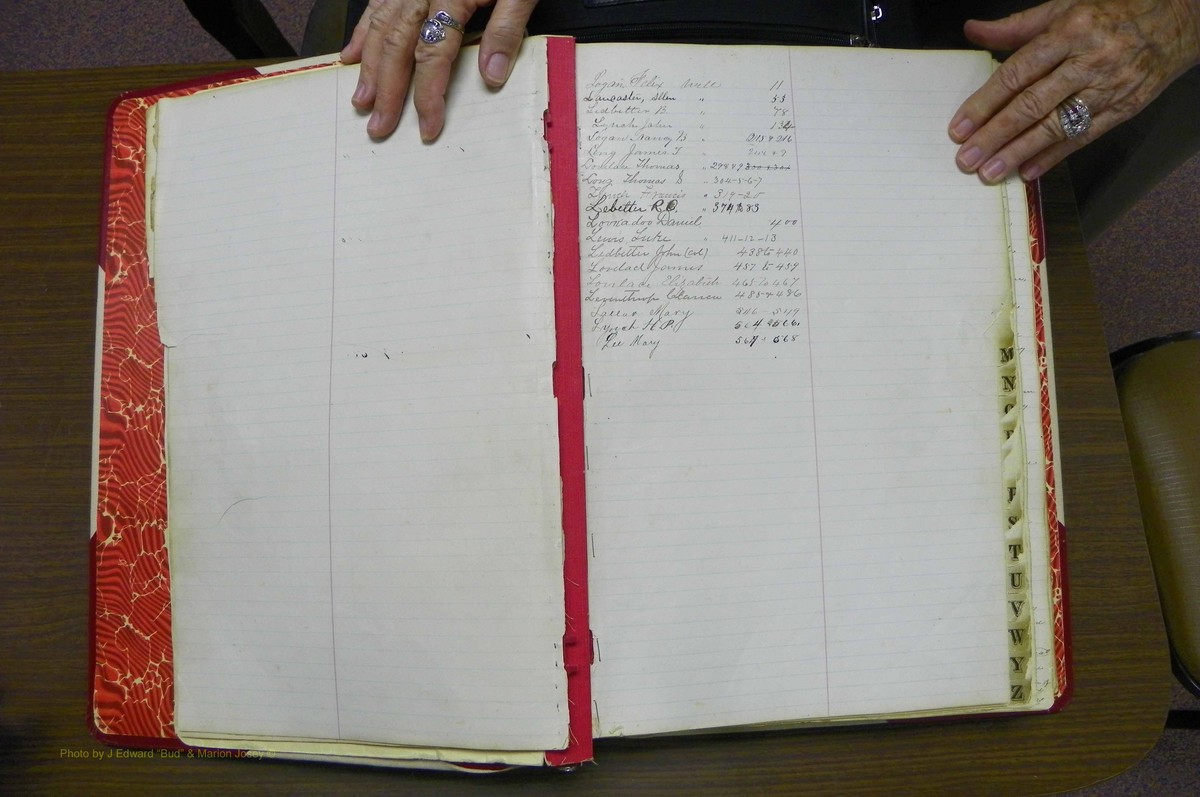 Logan Felix Will 11
Lancaster, Allen " 53
Ledbetter B. " 78
Lynch John " 134
Logan Nancy B " 215 & 216
Long James T "
Lovelace Thomas " 298 & 9 300 & 301
Long Thomas D - 304-5-6-7
Lynch Francis " 319-20
Lebetter R.O. " 379 to 83
Lookadoo Daniel 400
Lewis, Luke " 411-12-13
Ledbetter John (col) 438 to 440
Lovelace James 457 to 459
Lovelace Elizabeth 465 to 467
Leventhrop Clarence 485 & 486
Mary
Lynch H.P. 564 & 566
Lee Mary 567 & 568
M
N
O
P
S
T
U
V
W
Y
Z
Photo by J Edward "Bud" & Marion Josey ©